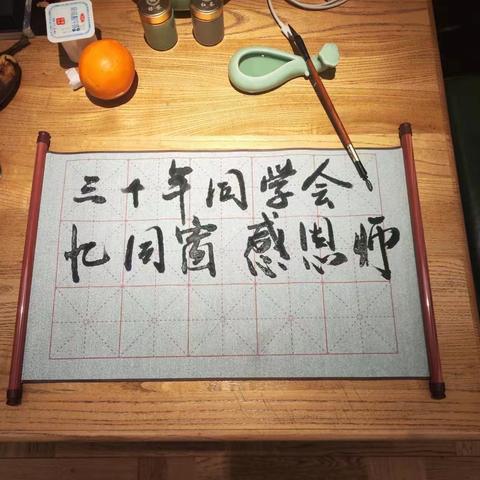 三十年同学会
忆同窗 感恩师